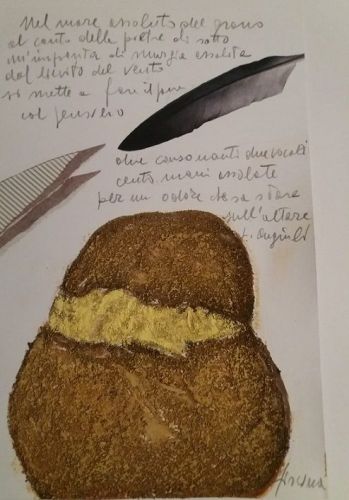 Nel mare assoluto del grano
al canto delle pietre di sotto
un'impronta di murgia assolata
dal lievito del vento
si mette a fare il pane
col pensiero
due consonanti due vocali
cento mani assolate
per un odore che sa stare
sull'altare